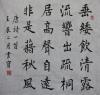 垂緌飲清露
流響出疏桐
居高聲自遠
非是藉秋風
唐詩一首